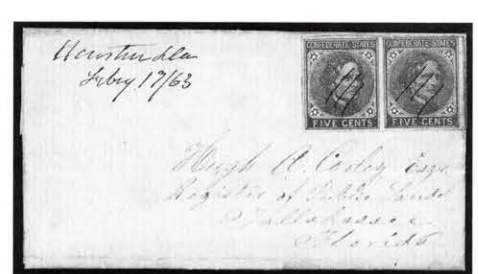 Houston Fla
Feby 17/63
CONFEDERATE STATES CONFEDERATE STATES
FIVE CENTS FIVE CENTS
Hugh A. Corley Esqr.
Register of Public Lands
Tallahassee
Florida